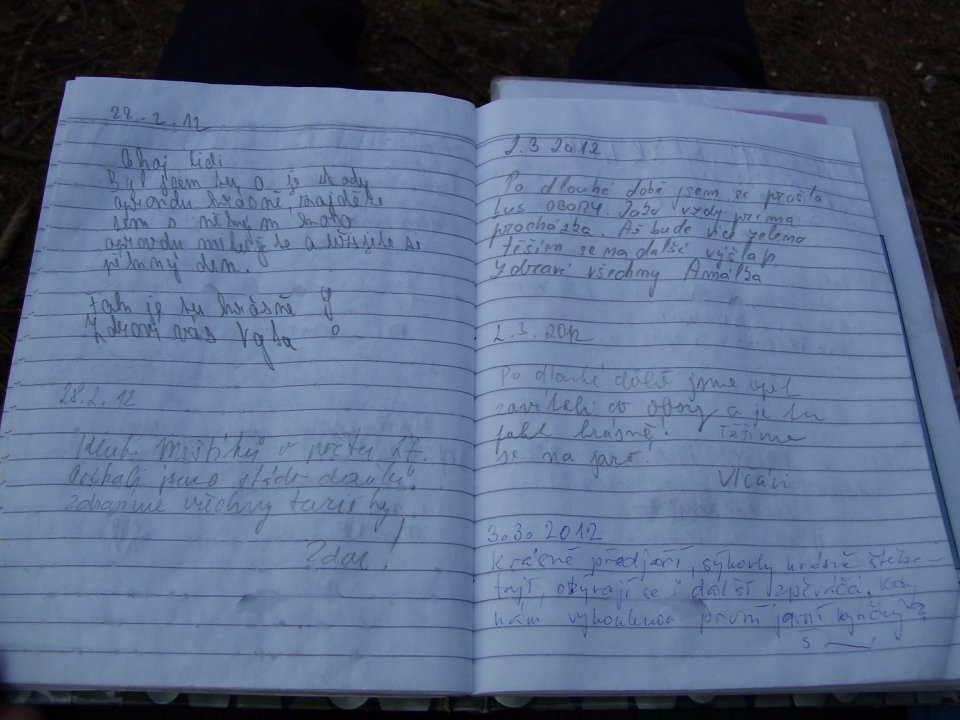 28.2.12
Ahoj lidi
Byl jsem tu a je tady
opravdu krásně, najděte
sem s někým
opravdu a užijete si
pěkný den.
Tak je tu krásně
Zdraví vás
28.2.12
Klub v počtu 17.
Potkali jsme stádo daňků.
Zdravíme všechny turisty
Zdar!
2.3 2012
Po dlouhé době jsem se prošla
OBORY. Jako vždy príma
procházka. Až bude více zeleno
těším se na další výšlap
Zdraví všechny Amálka
2.3.2012
Po dlouhé době jsme opět
zavítali do obory a je tu
fakt krásně! Těšíme
se na jaro!
Vlčáci
3.3.2012
Krásné předjaří, sýkorky krásně štěbe-
tají, ozývají se i další zpěváčci. Kdy
nám vykouknou první jarní kytičky?
S